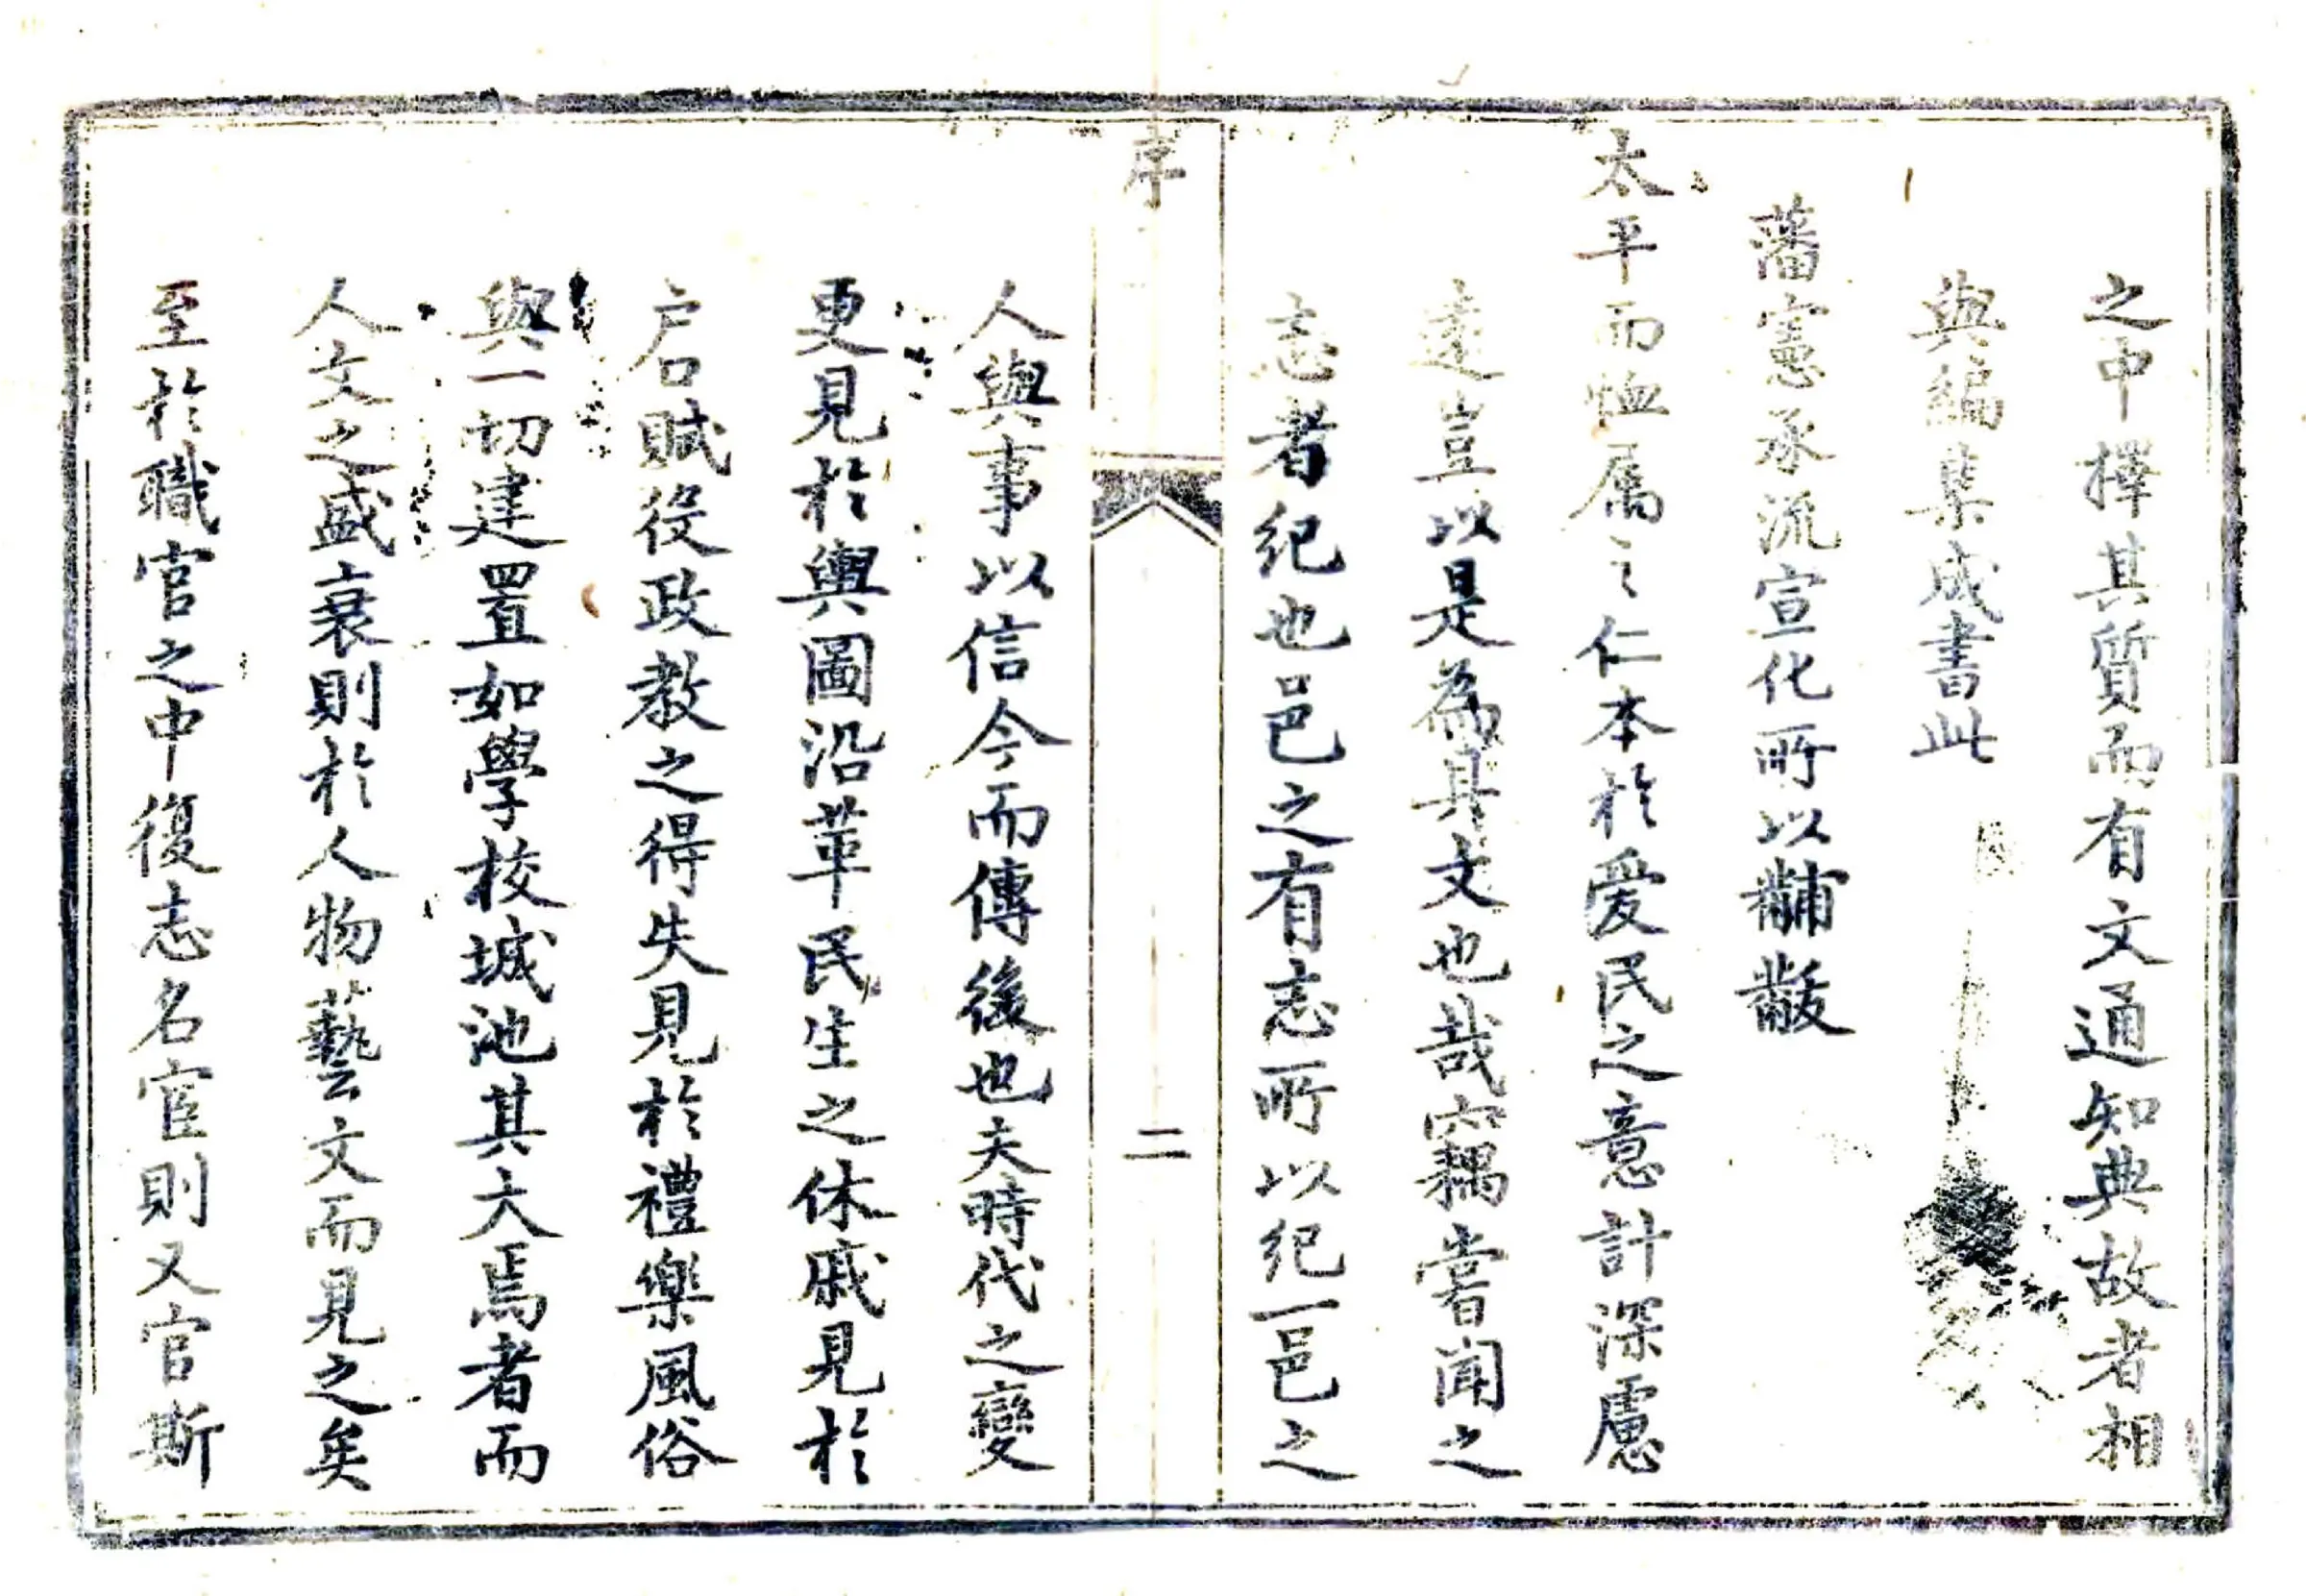 之中擇其質而有文通知典故者相
與編集成書此
藩憲承流宣化所以黼黻
太平而恤属之仁本於爱民之意計深慮
遠豈以是為其文也哉竊嘗聞之
志者紀也邑之有志所以紀一邑之
序
二
人與事以信今而傳後也夫時代之變
更見於輿圖沿革民生之休戚見於
户口賦役政教之得失見於禮樂風俗
與一切建置如學校城池其大焉者而
人文之盛衰則於人物藝文而見之矣
至於職官之中復志名宦則又官斯